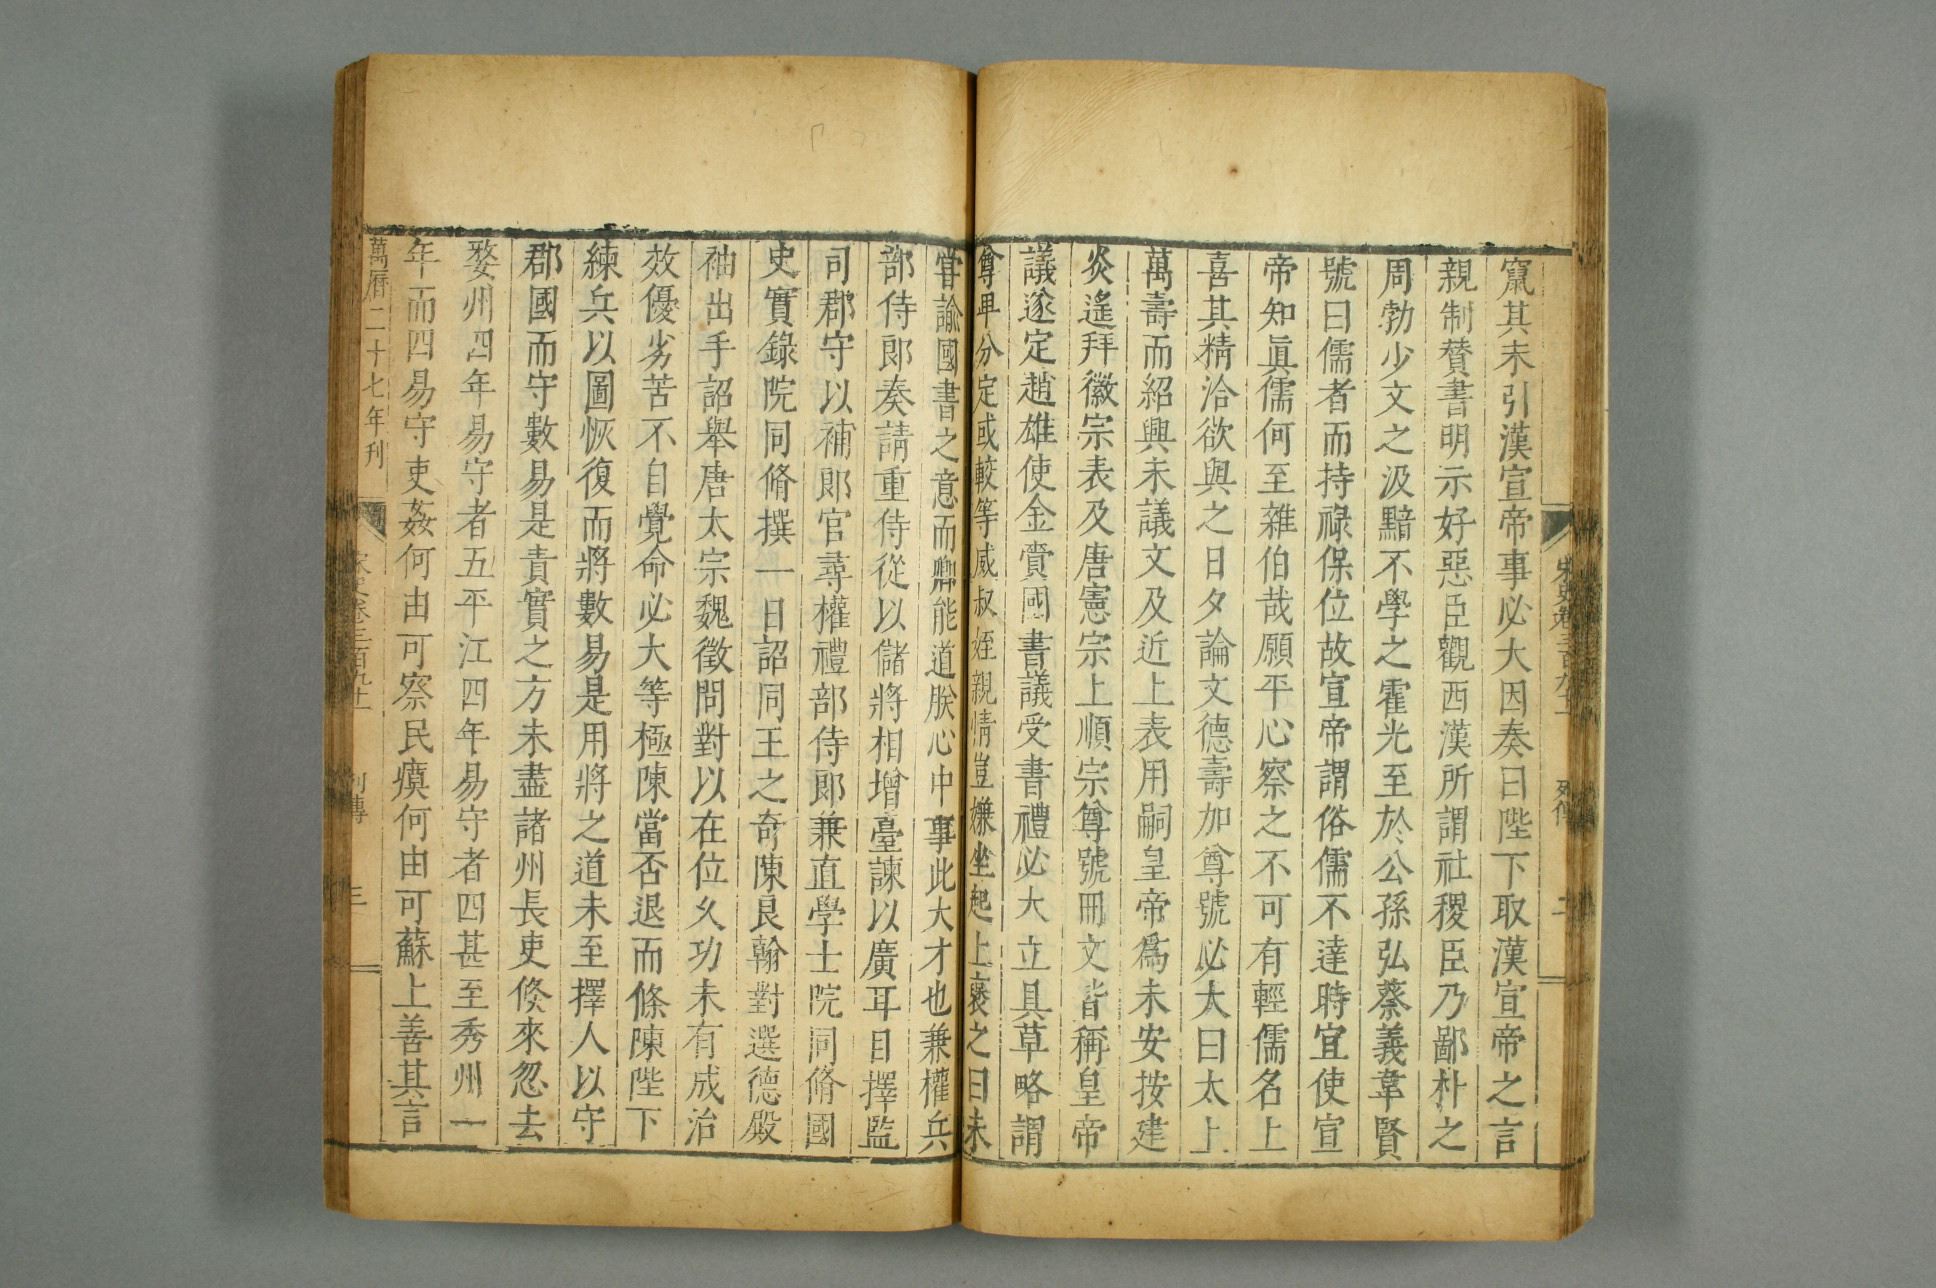 宋史卷三百九十一
列傳
二
竄其未引漢宣帝事必大因奏曰陛下取漢宣帝之言
親制贊書明示好惡臣觀西漢所謂社稷臣乃鄙朴之
周勃少文之汲黯不學之霍光至於公孫弘蔡義韋賢
號曰儒者而持祿保位故宣帝謂俗儒不達時宜使宣
帝知眞儒何至雜伯哉願平心察之不可有輕儒名上
喜其精洽欲與之日夕論文德壽加尊號必大曰太上
萬壽而紹興未議文及近上表用嗣皇帝爲未安按建
炎遙拜徽宗表及唐憲宗上順宗尊號冊文皆稱皇帝
議遂定趙雄使金賫國書議受書禮必大立具草略謂
尊卑分定或較等威叔姪親情豈嫌坐起上褒之曰未
甞諭國書之意而卿能道朕心中事此大才也兼權兵
部侍郎奏請重侍從以儲將相增臺諫以廣耳目擇監
司郡守以補郎官尋權禮部侍郎兼直學士院同脩國
史實錄院同脩撰一日詔同王之奇陳良翰對選德殿
袖出手詔舉唐太宗魏徵問對以在位久功未有成治
效優劣苦不自覺命必大等極陳當否退而條陳陛下
練兵以圖恢復而將數易是用將之道未至擇人以守
郡國而守數易是責實之方未盡諸州長吏倐來忽去
婺州四年易守者五平江四年易守者四甚至秀州一
年而四易守吏姦何由可察民瘼何由可蘇上善其言
萬曆二十七年刊
宋史卷三百九十一
列傳
三